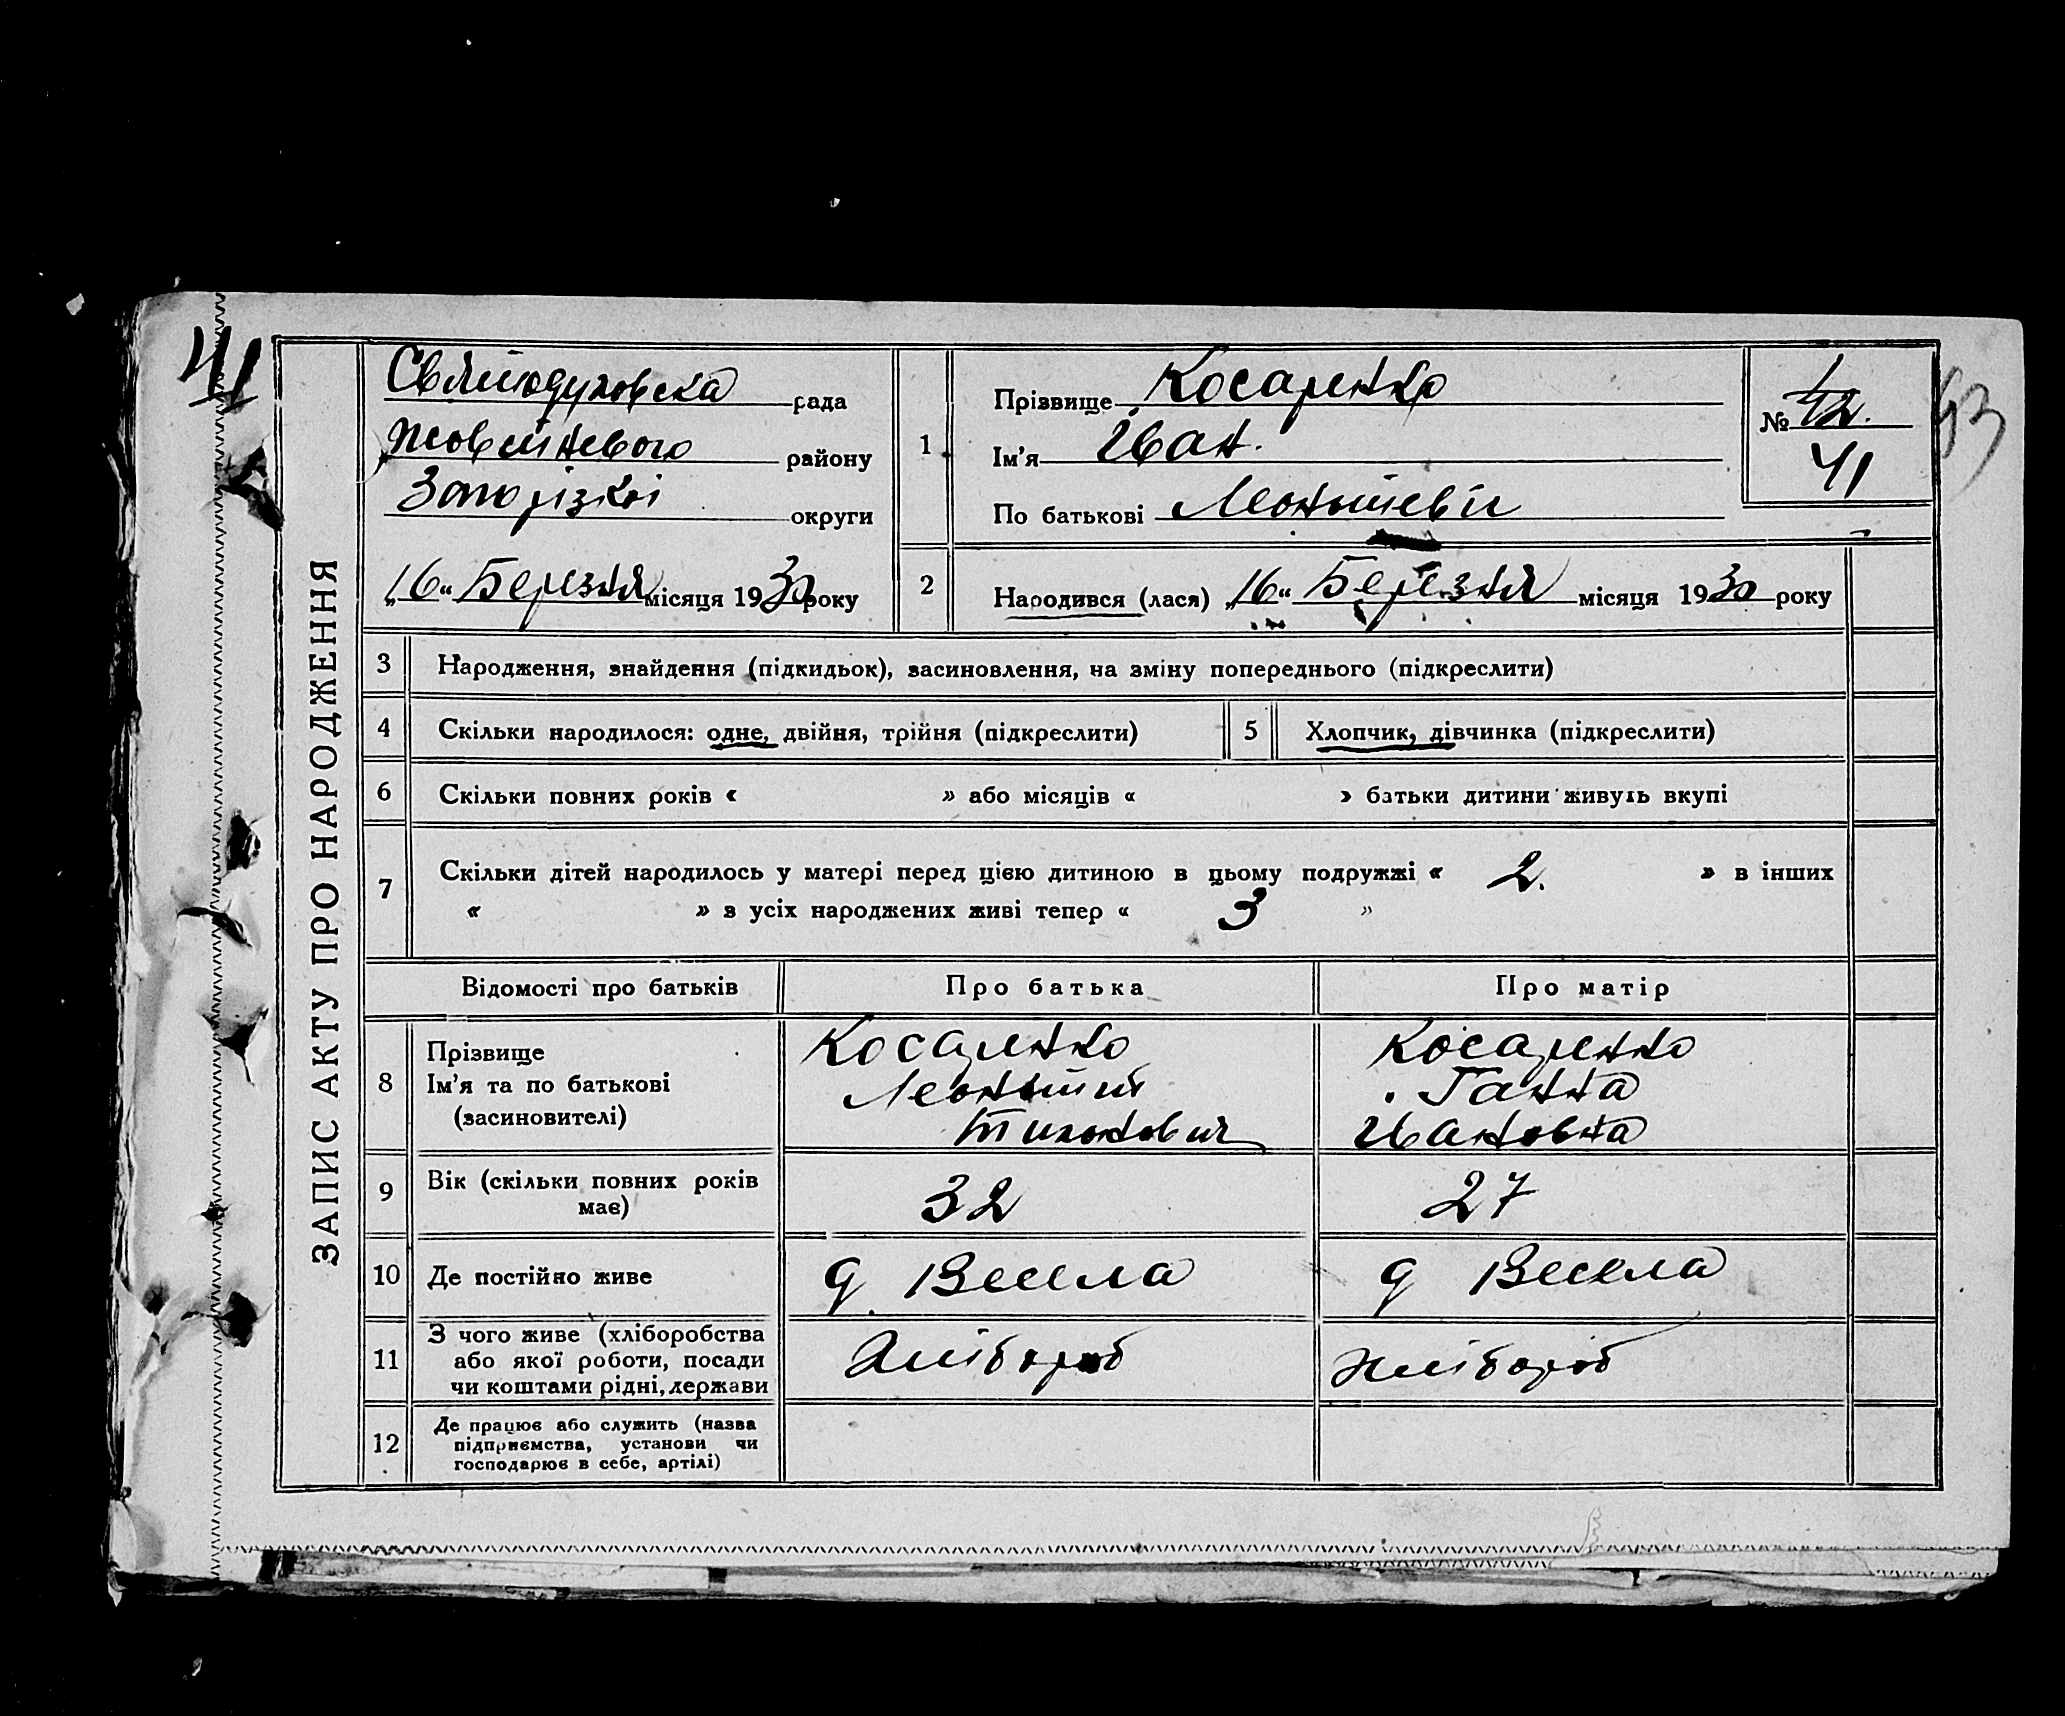 41
ЗАПИС АКТУ ПРО НАРОДЖЕННЯ
Святодуховска рада
Жовтневого району
Запорізкої округи
„16“ Березня місяця 1930 року
1
Прізвище Косаренко
Ім'я Иван.
По батькові Леонтиевич
№ 42.
41
53
2
Народився (лася) „16“ Березня місяця 1930 року
3 Народження, знайдення (підкидьок), засиновлення, на зміну попереднього (підкреслити)
4 Скільки народилося: одне, двійня, трійня (підкреслити)
5 Хлопчик, дівчинка (підкреслити)
6 Скільки повних років « » або місяців « » батьки дитини живуть вкупі
7 Скільки дітей народилось у матері перед цією дитиною в цьому подружжі « 2. » в інших
« » з усіх народжених живі тепер « 3 »
Відомості про батьків Про батька Про матір
8
Прізвище
Ім'я та по батькові
(засиновителі)
Косаренко
Леонтий
Тихонович
Косаренко
Ганна
Ивановна
9 Вік (скільки повних років
має)
32
27
10 Де постійно живе
д. Весела
д Весела
11 З чого живе (хліборобства
або якої роботи, посади
чи коштами рідні, держави
Хлібороб
Хлібороб
12 Де працює або служить (назва
підприємства, установи чи
господарює в себе, артілі)